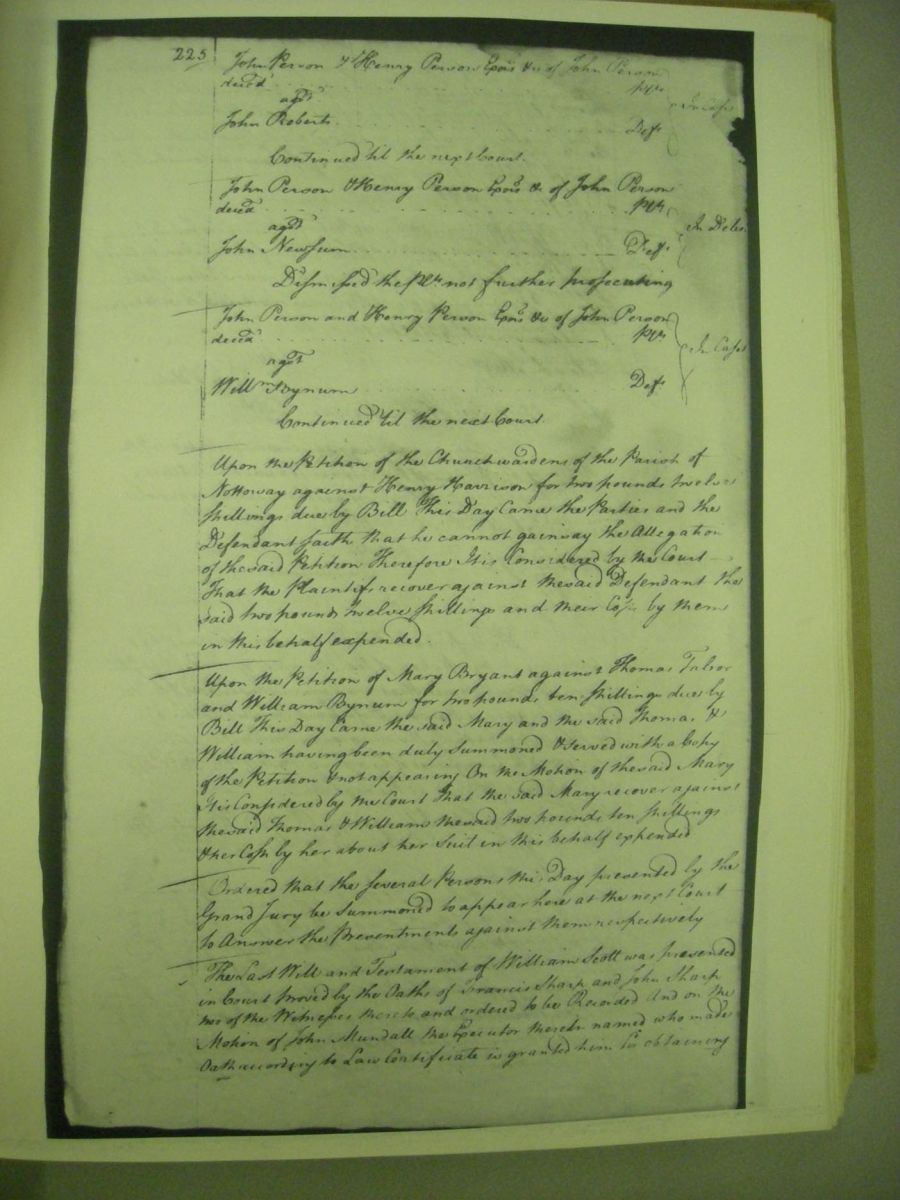 225
John Person & Henry Person Exors &c of John Person
deced Plts
agst In Case
John Roberts Deft
Continued til the next Court.
John Person & Henry Person Exors &c of John Person
deced Plts
agst In Debt
John Newsum Deft
Dismissed the Plts not further prosecuting
John Person and Henry Person Exors &c of John Person
deced Plts
agst In Case
Willm Bynum Deft
Continued til the next Court
Upon the Petition of the Churchwardens of the Parish of
Nottoway against Henry Harrison for two pounds twelve
shillings due by Bill This Day Came the Parties and the
Defendant saith that he cannot gainsay the Allegation
of the said Petition Therefore It is Considered by the Court
That the Plaintifs recover against the said Defendant the
said two pounds twelve shillings and their Costs by them
in this behalf expended.
Upon the Petition of Mary Bryant against Thomas
and William Bynum for two pounds ten shillings due by
Bill This Day Came the said Mary and the said Thomas &
William having been duly Summoned & served with a Copy
of the Petition & not appearing On the Motion of the said Mary
It is Considered by the Court That the said Mary recover against
the said Thomas & William the said two pounds ten shillings
& her Costs by her about her Suit in this behalf expended
Ordered that the several Persons this Day presented by the
Grand Jury be Summoned to appear here at the next Court
to Answer the Presentments against them respectively
The Last Will and Testament of William Scott was presented
in Court proved by the Oaths of Francis Sharp and John Sharp
two of the Witnesses thereto and ordered to be Recorded And on the
Motion of John Mundall the Executor therein named who made
Oath according to Law Certificate is granted him for obtaining